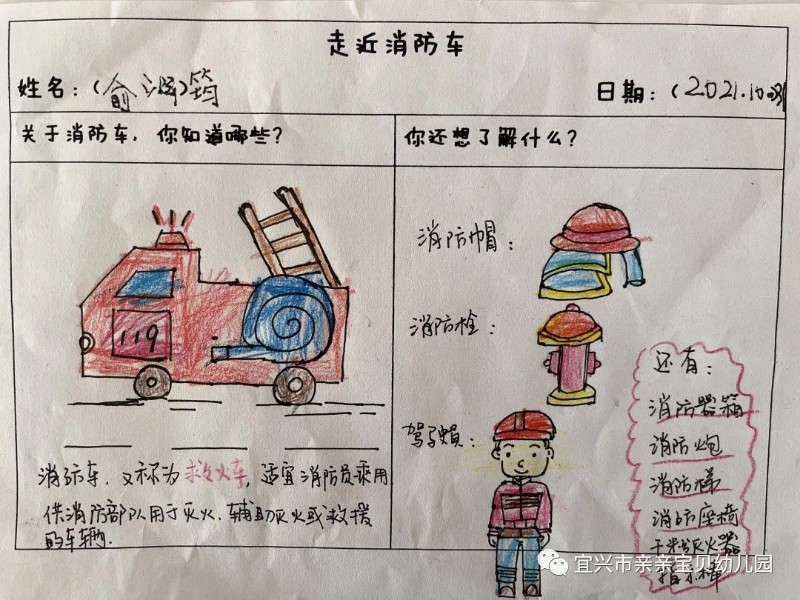 走近消防车
姓名：(俞 筠
日期：(2021.10.
关于消防车，你知道哪些？
你还想了解什么？
119
消防车，又称为救火车，适宜消防员乘用
供消防部队用于灭火、辅助灭火或救援
的车辆。
消防帽：
消防栓：
驾驶员：
还有：
消防器箱
消防炮
消防梯
消防座椅
干粉灭火器
指示牌
宜兴市亲亲宝贝幼儿园